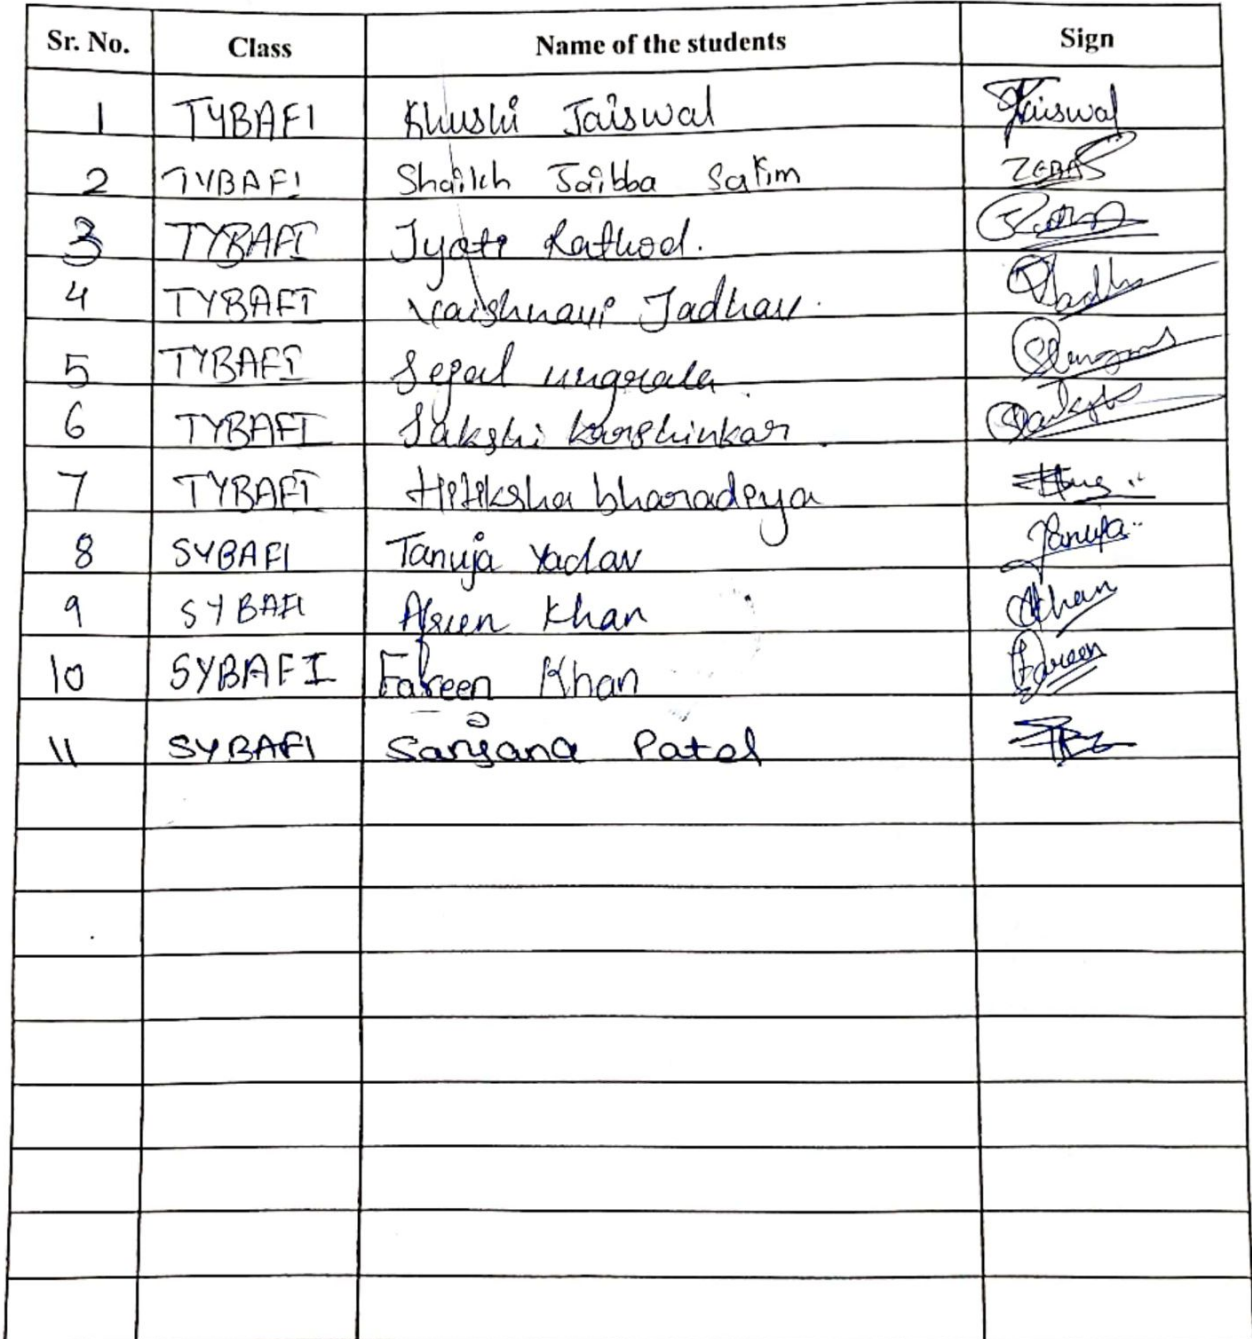 Sr. No. Class Name of the students Sign
1 TYBAFI Khushi Jaiswal Jaiswal
2 TYBAFI Shaikh Jaibba Salim ZEBAS
3 TYBAFI Jyoti Rathod.
4 TYBAFI Vaishnavi Jadhav.
5 TYBAFI Sejal
6 TYBAFI Sakshi
7 TYBAFI Hitiksha bharadiya
8 SYBAFI Tanuja Yadav Tanuja
9 SYBAFI Khan Khan
10 SYBAFI Fareen Khan Fareen
11 SYBAFI Sanjana Patel